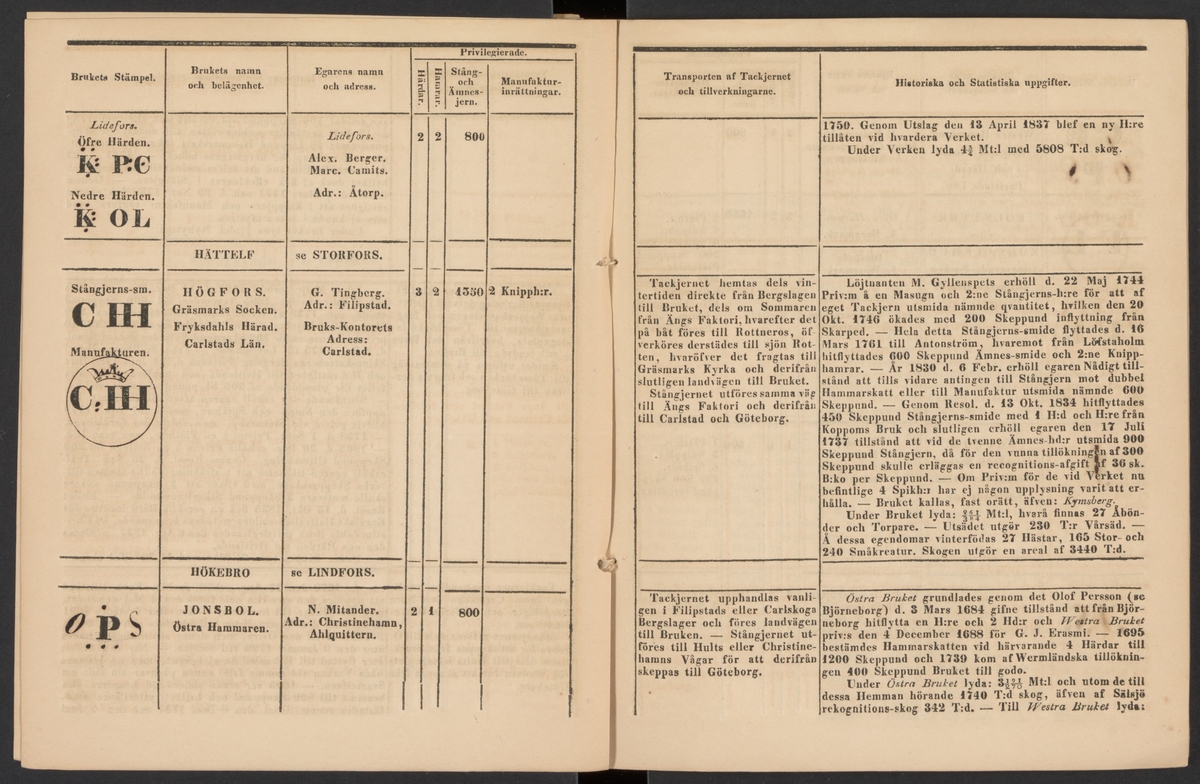 Brukets Stämpel.
Brukets namn
och belägenhet.
Egarens namn
och adress.
Privilegierade.
Härdar.
Hamrar.
Stång-
och
Ämnes-
jern.
Manufaktur-
inrättningar.
Lidefors.
Öfre Härden.
K: P:C
Nedre Härden.
K: OL
Lidefors.
Alex. Berger.
Marc. Camits.
Adr.: Åtorp.
2 2 800
HÄTTELF se STORFORS.
Stångjerns-sm.
C HH
Manufakturen.
C:HH
HÖGFORS.
Gräsmarks Socken.
Fryksdahls Härad.
Carlstads Län.
G. Tingberg.
Adr.: Filipstad.
Bruks-Kontorets
Adress:
Carlstad.
3 2 1350 2 Knipph:r.
HÖKEBRO se LINDFORS.
O P S
JONSBOL.
Östra Hammaren.
N. Mitander.
Adr.: Christinehamn,
Ahlquittern.
2 1 800
Transporten af Tackjernet
och tillverkningarne.
Historiska och Statistiska uppgifter.
1750. Genom Utslag den 13 April 1837 blef en ny H:re
tillåten vid hvardera Verket.
Under Verken lyda 4¾ Mt:l med 5808 T:d skog.
Tackjernet hemtas dels vin-
tertiden direkte från Bergslagen
till Bruket, dels om Sommaren
från Ängs Faktori, hvarefter det
på båt föres till Rottneros, öf-
verköres derstädes till sjön Rot-
ten, hvaröfver det fragtas till
Gräsmarks Kyrka och derifrån
slutligen landvägen till Bruket.
Stångjernet utföres samma väg
till Ängs Faktori och derifrån
till Carlstad och Göteborg.
Löjtnanten M. Gyllenspets erhöll d. 22 Maj 1744
Priv:m å en Masugn och 2:ne Stångjerns-h:re för att af
eget Tackjern utsmida nämnde qvantitet, hvilken den 20
Okt. 1746 ökades med 200 Skeppund inflyttning från
Skarped. — Hela detta Stångjerns-smide flyttades d. 16
Mars 1761 till Antonström, hvaremot från Löfstaholm
hitflyttades 600 Skeppund Ämnes-smide och 2:ne Knipp-
hamrar. — År 1830 d. 6 Febr. erhöll egaren Nådigt till-
stånd att tills vidare antingen till Stångjern mot dubbel
Hammarskatt eller till Manufaktur utsmida nämnde 600
Skeppund. — Genom Resol. d. 13 Okt. 1834 hitflyttades
450 Skeppund Stångjerns-smide med 1 H:d och H:re från
Koppoms Bruk och slutligen erhöll egaren den 17 Juli
1737 tillstånd att vid de tvenne Ämnes-hd:r utsmida 900
Skeppund Stångjern, då för den vunna tillökningen af 300
Skeppund skulle erläggas en recognitions-afgift af 36 sk.
B:ko per Skeppund. — Om Priv:m för de vid Verket nu
befintlige 4 Spikh:r har ej någon upplysning varit att er-
hålla. — Bruket kallas, fast orätt, äfven: Kymsberg.
Under Bruket lyda: Mt:l, hvarå finnas 27 Åbön-
der och Torpare. — Utsädet utgör 230 T:r Vårsäd. —
Å dessa egendomar vinterfödas 27 Hästar, 165 Stor- och
240 Småkreatur. Skogen utgör en areal af 3440 T:d.
Tackjernet upphandlas vanli-
gen i Filipstads eller Carlskoga
Bergslager och föres landvägen
till Bruken. — Stångjernet ut-
föres till Hults eller Christine-
hamns Vågar för att derifrån
skeppas till Göteborg.
Östra Bruket grundlades genom det Olof Persson (se
Björneborg) d. 3 Mars 1684 gifne tillstånd att från Björ-
neborg hitflytta en H:re och 2 Hd:r och Westra Bruket
priv:s den 4 December 1688 för G. J. Erasmi. — 1695
bestämdes Hammarskatten vid härvarande 4 Härdar till
1200 Skeppund och 1739 kom af Wermländska tillöknin-
gen 400 Skeppund Bruket till godo.
Under Östra Bruket lyda: Mt:l och utom de till
dessa Hemman hörande 1740 T:d skog, äfven af Sälsjö
rekognitions-skog 342 T:d. — Till Westra Bruket lyda: